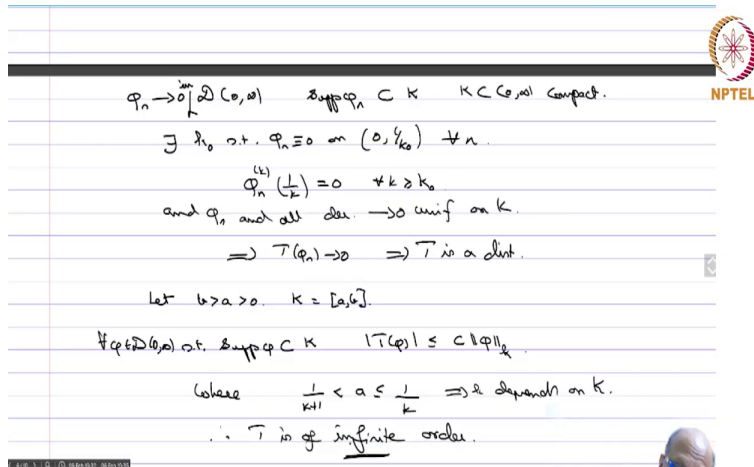 φₙ → 0 in D(0,∞) supp φₙ ⊂ K K ⊂ (0,∞) compact.
NPTEL
∃ k₀ s.t. φₙ ≡ 0 on (0, 1/k₀) ∀ n.
φₙ^(k) (1/k) = 0 ∀ k ≥ k₀
and φₙ and all der. → 0 unif on K.
⇒ T(φₙ) → 0 ⇒ T is a dist.
Let b > a > 0. K = [a,b].
∀ φ ∈ D(0,∞) s.t. supp φ ⊂ K |T(φ)| ≤ C ‖φ‖ₖ
where 1/(k+1) < a ≤ 1/k ⇒ k depends on K.
∴ T is of infinite order.